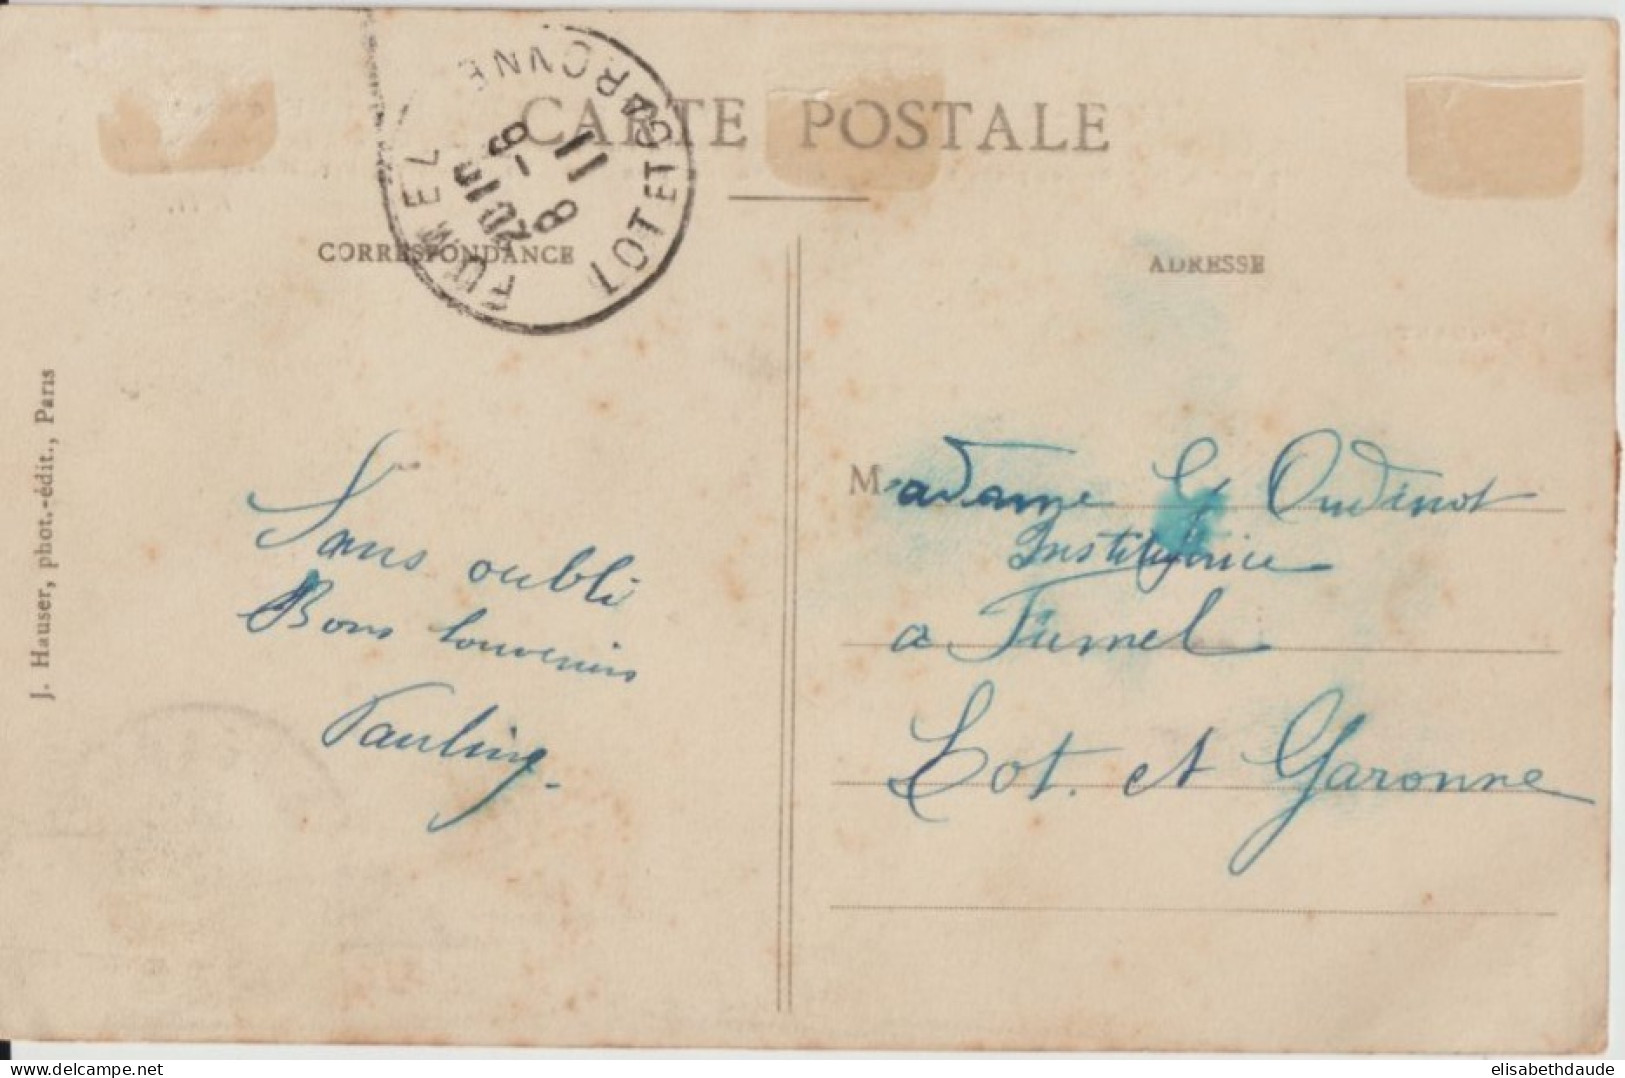 CARTE POSTALE
FUMEL
LOT ET GARONNE
8 - 6
11
CORRESPONDANCE
ADRESSE
J. Hauser, phot.-édit., Paris
Sans oubli
Bons souvenirs
Pauline.
Madame Oudinot
Institutrice
a Fumel
Lot. et Garonne
delcampe.net
elisabethdaude